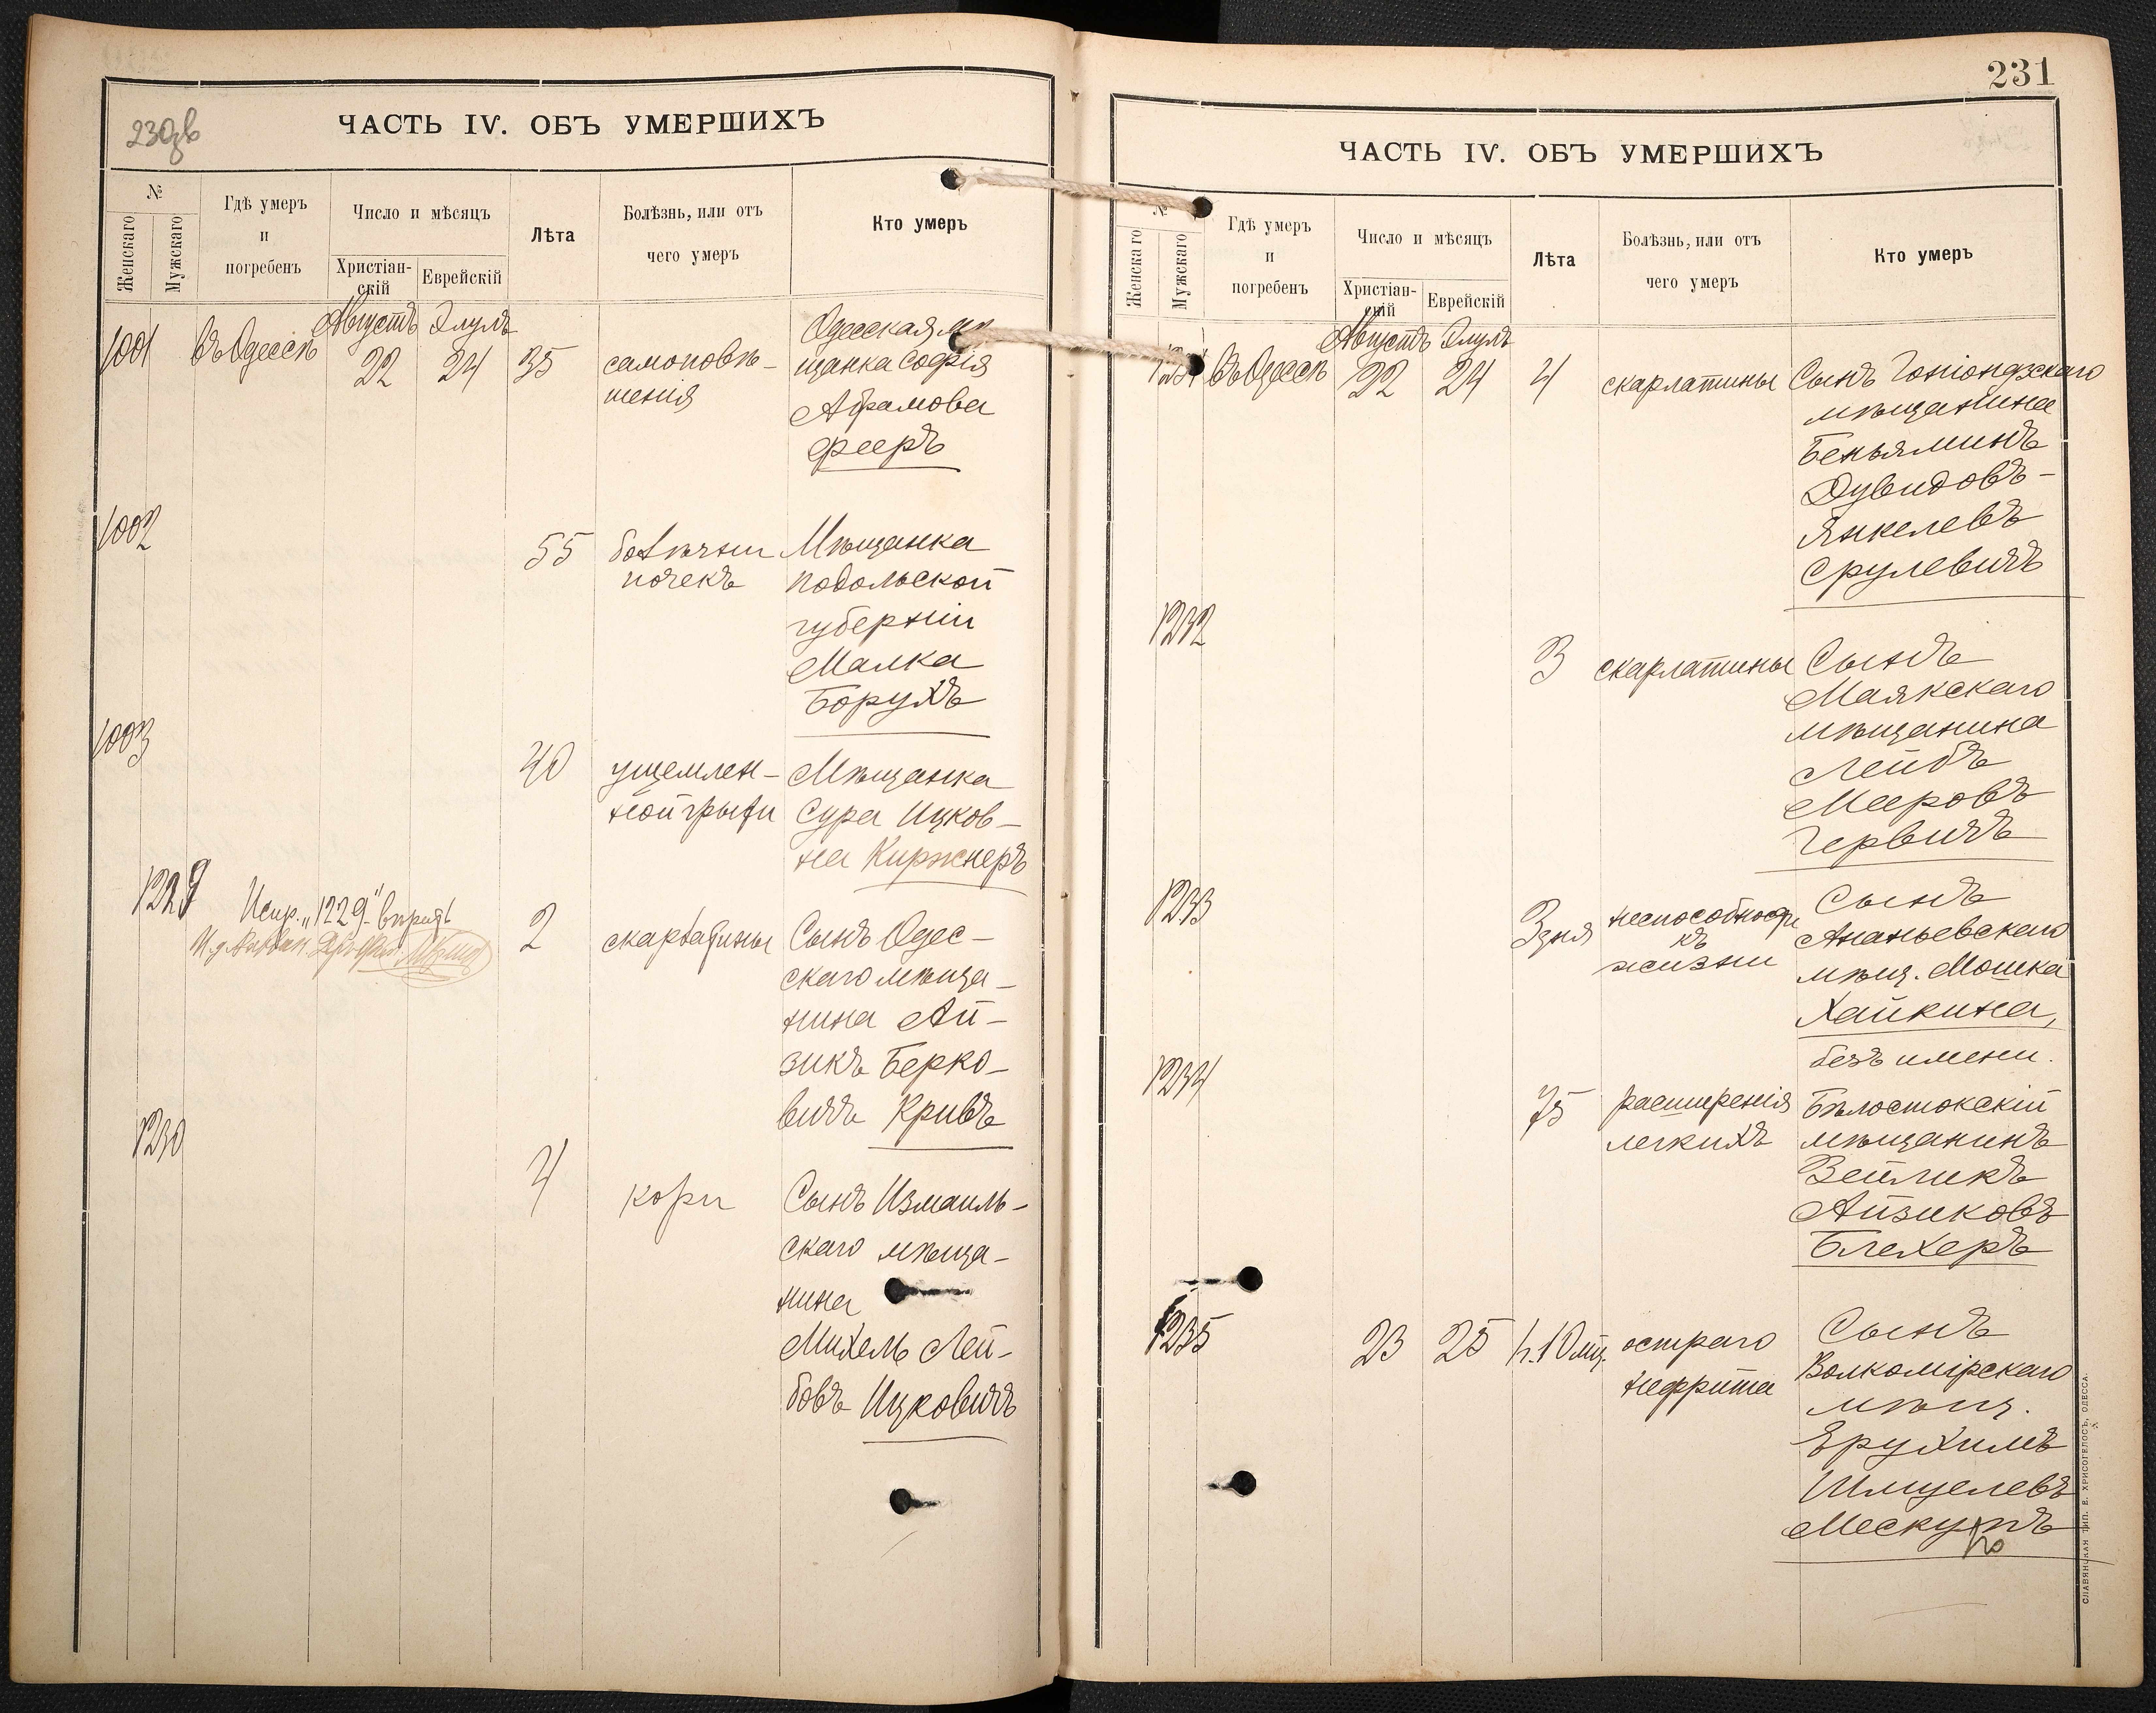 230об
ЧАСТЬ IV. ОБЪ УМЕРШИХЪ
№
Женскаго
Мужскаго
Гдѣ умеръ
и
погребенъ
Число и мѣсяцъ
Христіан-
скій
Еврейскій
Лѣта
Болѣзнь, или отъ
чего умеръ
Кто умеръ
Августъ Элулъ
1001 въ Одессѣ 22 24 35
самоповѣ-
шенія
Одесская мѣ
щанка Софія
Абрамова
Фееръ
1002
55
болѣзни
почекъ
Мѣщанка
подольской
губерніи
Малка
Борухъ
1003
40
ущемлен-
ной грыжи
Мѣщанка
Сура Ицков-
на Киржнеръ
1229
Испр. „1229" вѣрить
2
скарлатины
Сынъ Одес-
скаго мѣща-
нина Ай-
зикъ Берко-
вичъ Кривъ
1230
4
кори
Сынъ Измаиль-
скаго мѣща-
нина
Михель Лей-
бовъ Ицковичъ
231
ЧАСТЬ IV. ОБЪ УМЕРШИХЪ
№
Женскаго
Мужскаго
Гдѣ умеръ
и
погребенъ
Число и мѣсяцъ
Христіан-
скій
Еврейскій
Лѣта
Болѣзнь, или отъ
чего умеръ
Кто умеръ
Августъ Элулъ
1231 въ Одессѣ 22 24 4
скарлатины
Сынъ Гоніондзскаго
мѣщанина
Беньяминъ
Дувидовъ-
Янкелевъ
Срулевичъ
1232
3
скарлатины
Сынъ
Маякскаго
мѣщанина
Лейбъ
Мееровъ
Гервичъ
1233
3 дня
неспособности
къ
жизни
Сынъ
Ананьевскаго
мѣщ. Мошка
Хайкина,
безъ имени.
1234
75
расширенія
легкихъ
Бѣлостокскій
мѣщанинъ
Зейликъ
Айзиковъ
Блехеръ
1235
23 25
остраго
нефрита
Сынъ
Волкомірскаго
мѣщ.
Ерухимъ
Шмуелевъ
СЛАВЯНСКАЯ ТИП. Е. ХРИСОГЕЛОСЪ, ОДЕССА.